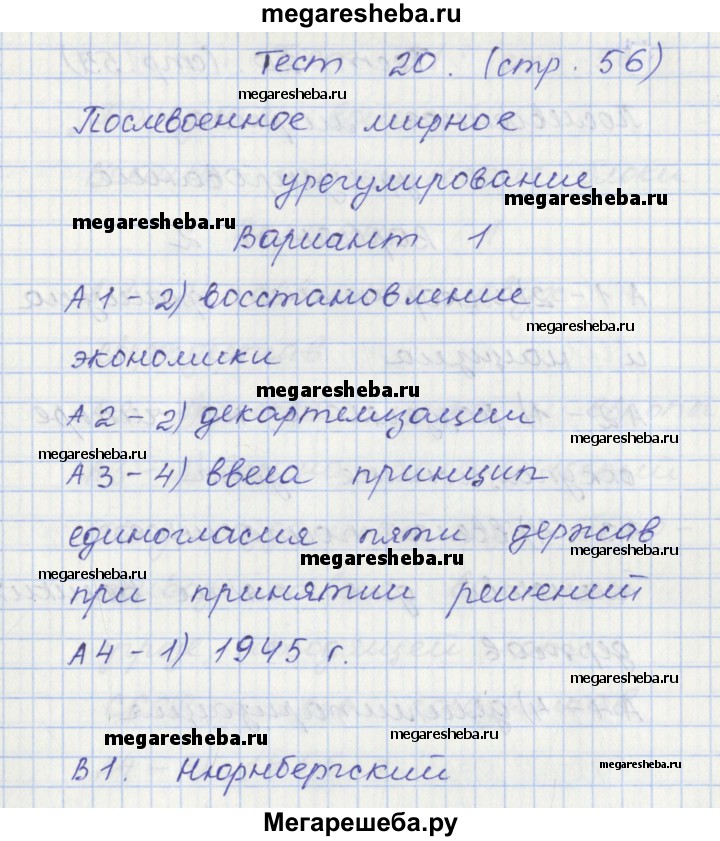 megaresheba.ru
Тест 20. (стр. 56)
megaresheba.ru
Послевоенное мирное
урегулирование
megaresheba.ru
megaresheba.ru
Вариант 1
megaresheba.ru
А1 - 2) восстановление
megaresheba.ru
экономики
megaresheba.ru
А2 - 2) декартелизации
megaresheba.ru
megaresheba.ru
А3 - 4) ввела принцип
единогласия пяти держав
megaresheba.ru
megaresheba.ru
megaresheba.ru
при принятии решений
А4 - 1) 1945 г.
megaresheba.ru
megaresheba.ru
megaresheba.ru
В1. Нюрнбергский
megaresheba.ru
megaresheba.ru
Мегарешеба.ру